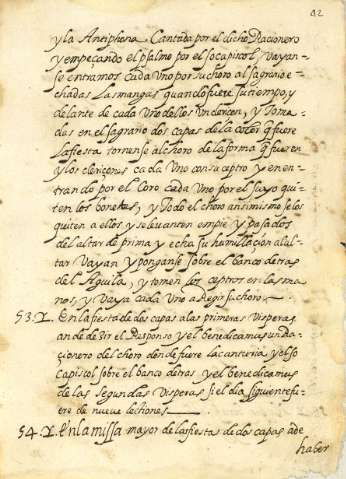 42
y la Antiphona. Cantada por el dicho Racionero
y empeçando el psalmo por el socapiscol, vayan-
se entramos cada Uno por su choro al sagrario e-
chadas las mangas quando fuere su tiempo, y
delante de cada Uno dellos un clericon, y toma-
das en el sagrario dos capas de la color q̃ fuere
la fiesta tornense al choro de la forma q̃ fueren
y los clericones cada Uno con su ceptro y en en-
trando por el Coro cada Uno por el suyo qui-
ten los bonetes, y todo el choro ansimismo se los
quiten a ellos, y se levanten em pie y pasados
del altar de prima y echa su humillacion al al-
tar Vayan y ponganse sobre el banco detras
del Aguila, y tomen los ceptros en las ma-
nos, y Vaya cada Uno a Regir su choro.
53. Y. En la fiesta de dos capas a las primeras Visperas
an de dezir el Responso y el benedicamus un Ra-
cionero del choro donde fuere la cantoria y el so
capiscol sobre el banco detras y el benedicamus
de las segundas Visperas si el dia siguiente fu-
ere de nueve lectiones
54. Y. En la missa mayor de las fiestas de dos capas a de
haber